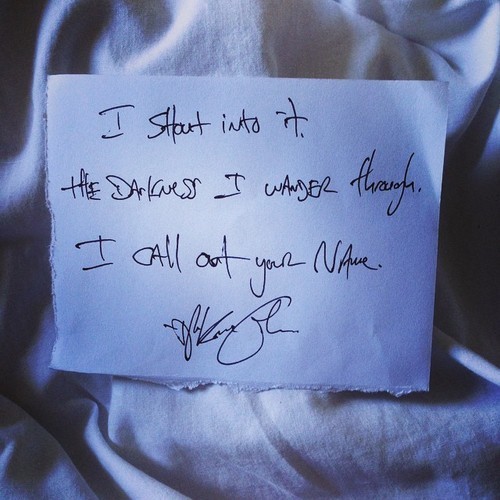 I Shout into it.
the Darkness I wander through.
I call out your Name.